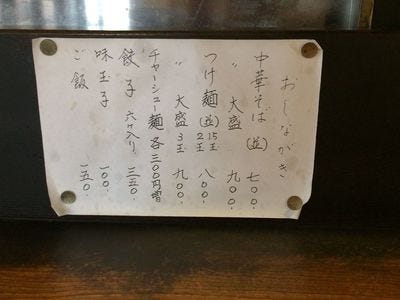 おしながき
中華そば(並) 七〇〇.
〃 大盛 九〇〇.
つけ麺(並) 1.5玉 2玉 八〇〇.
〃 大盛 3玉 九〇〇.
チャーシュー麺各三〇〇円増
餃子 六ヶ入り 三五〇.
味玉子 一〇〇.
ご飯 一五〇.